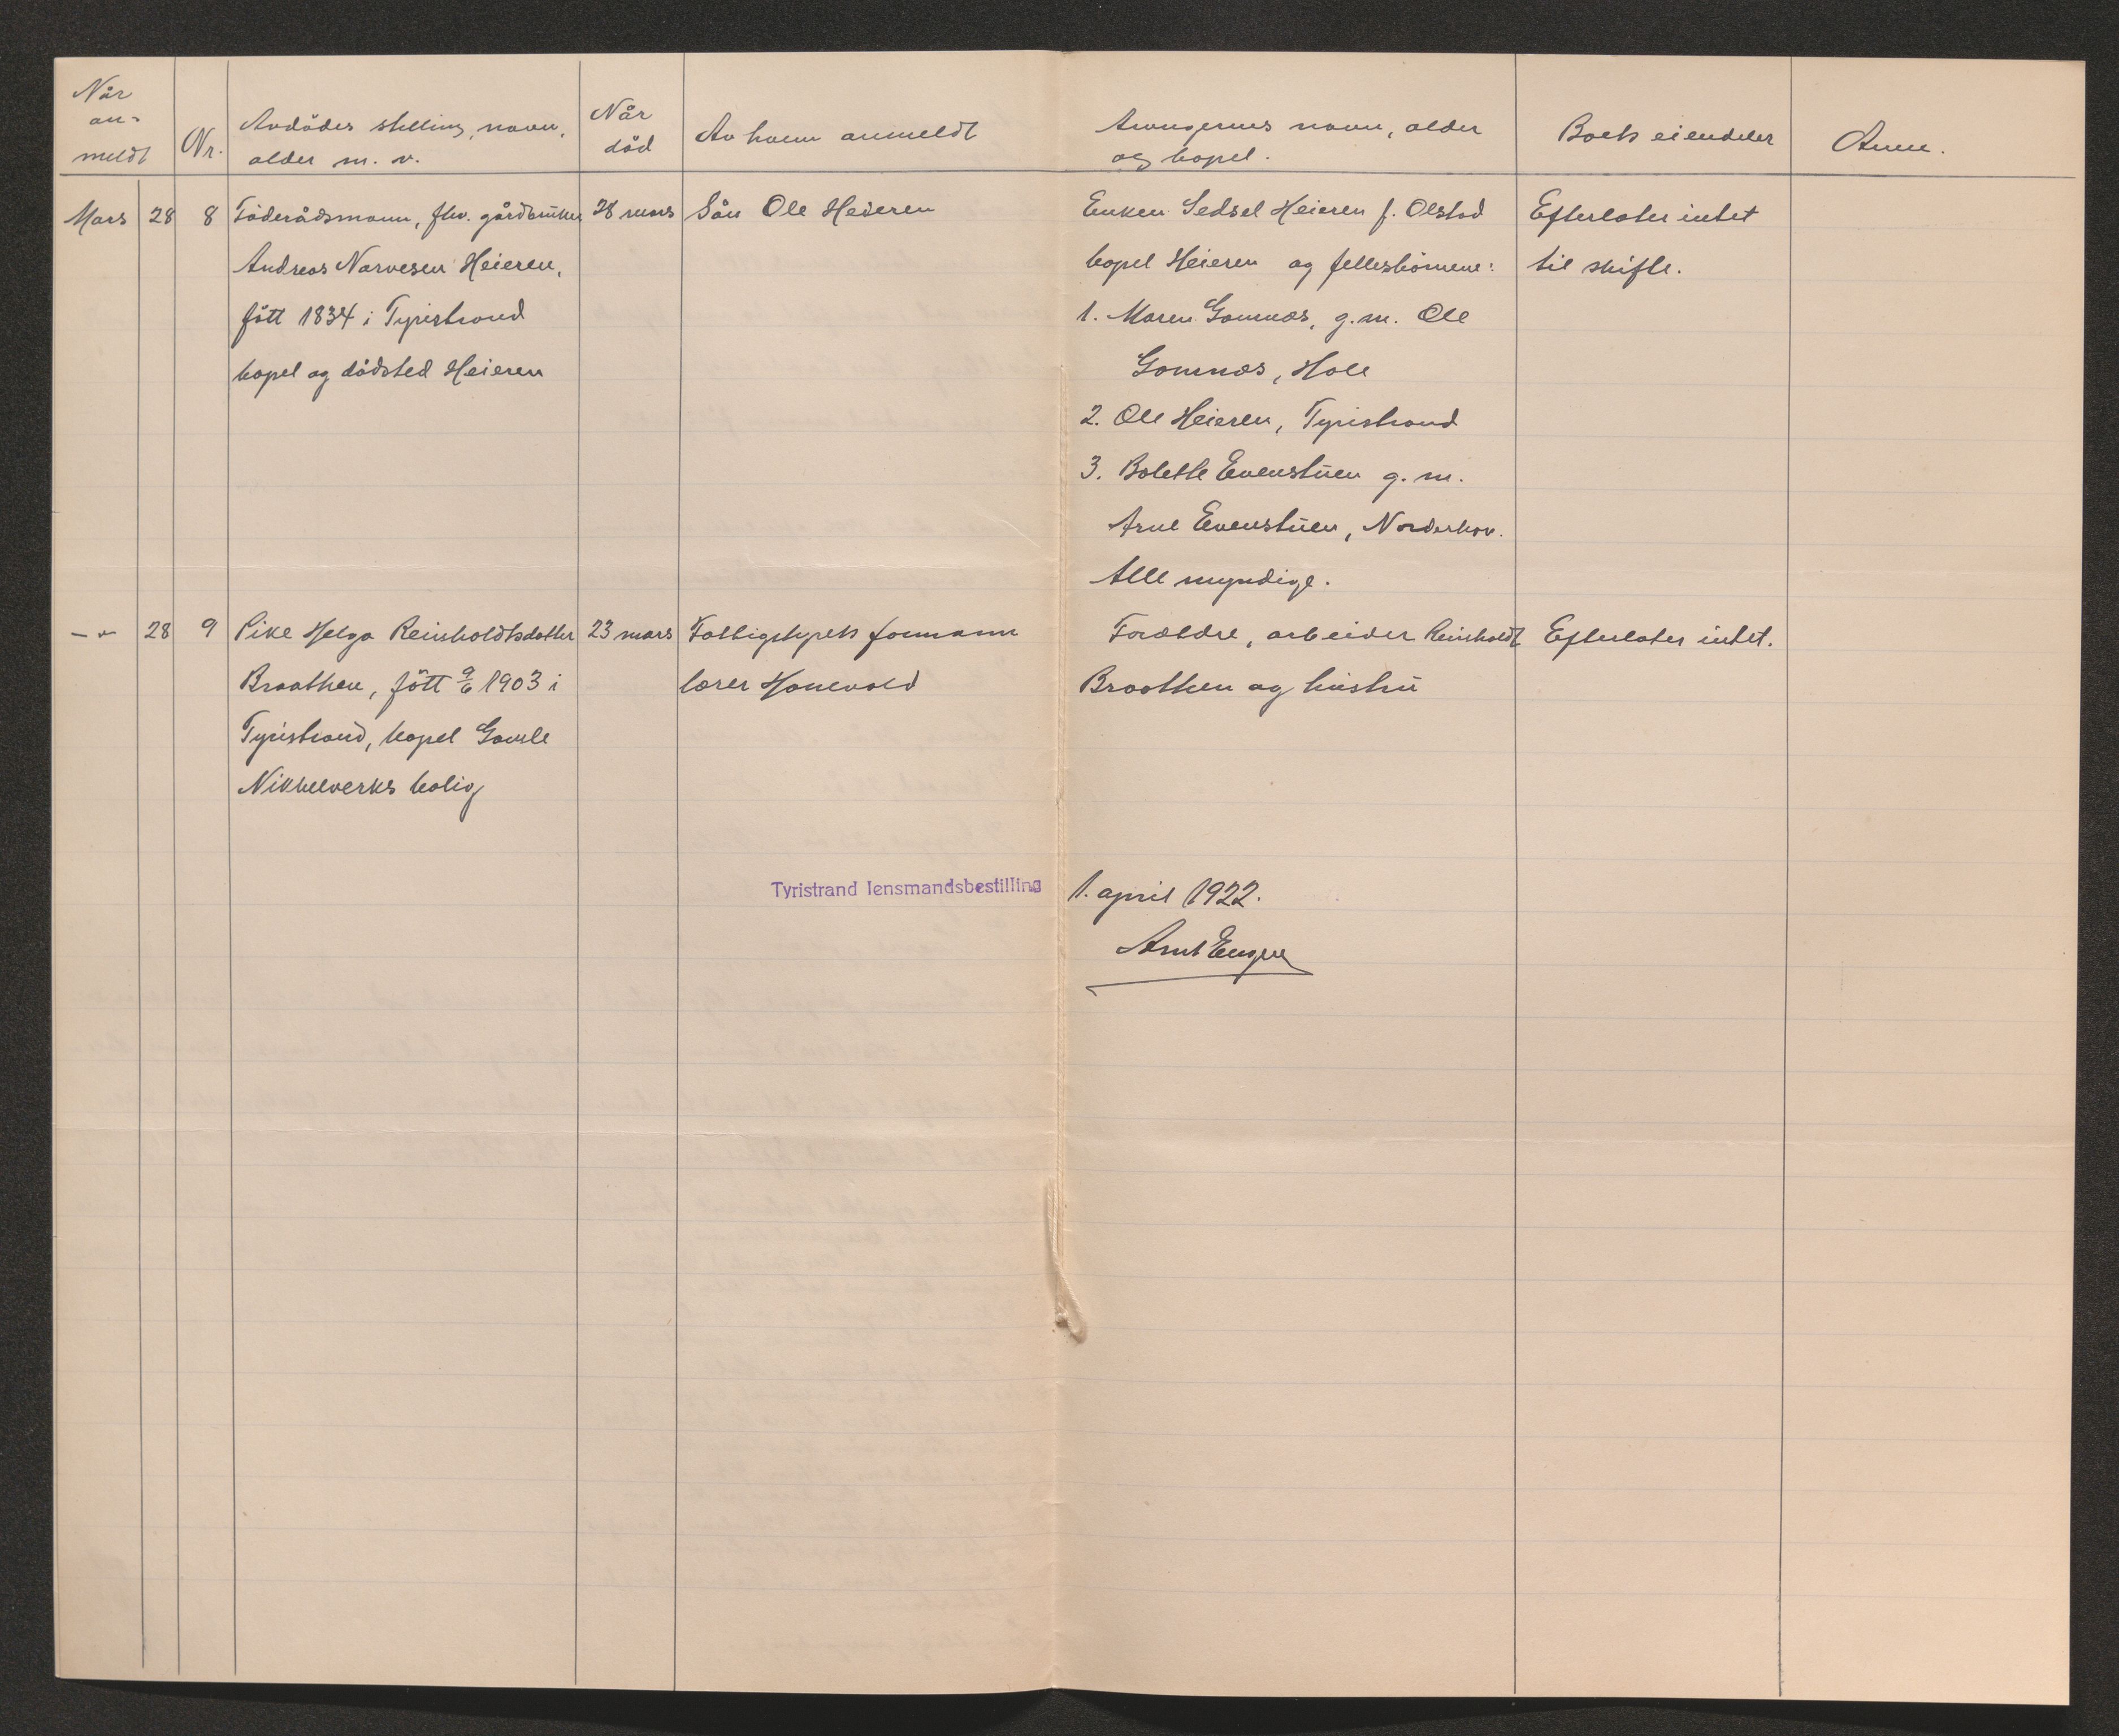 Når an-meldt
Nr.
Avdödes stilling, navn, alder m. v.
Når död
Av hvem anmeldt
Arvingernes navn, alder og bopel.
Boets eiendeler
Anm.
Mars 28 8 Föderådsmann, fhv. gårdbruker 28 mars Sön Ole Heieren Enken Sedsel Heieren f. Olstad Efterlater intet
Andreas Narvesen Heieren, bopel Heieren og fellesbörnene: til skifte.
fött 1834 i Tyristrand 1. Maren Gomnæs, g.m. Ole
bopel og dödsted Heieren Gomnæs, Hole
2. Ole Heieren, Tyristrand
3. Bolette Evenstuen g. m.
Arne Evenstuen, Norderhov.
Alle myndige.
-"- 28 9 Pike Helga Reinholdtsdatter 23 mars Fattigstyrets formann Forældre, arbeider Reinholdt Efterlater intet.
Braathen, fött 9/6 1903 i lærer Honevald Braathen og hustru
Tyristrand, bopel Gamle
Nikkelverks bolig
Tyristrand lensmandsbestilling 1. april 1922.
Arnt Enger